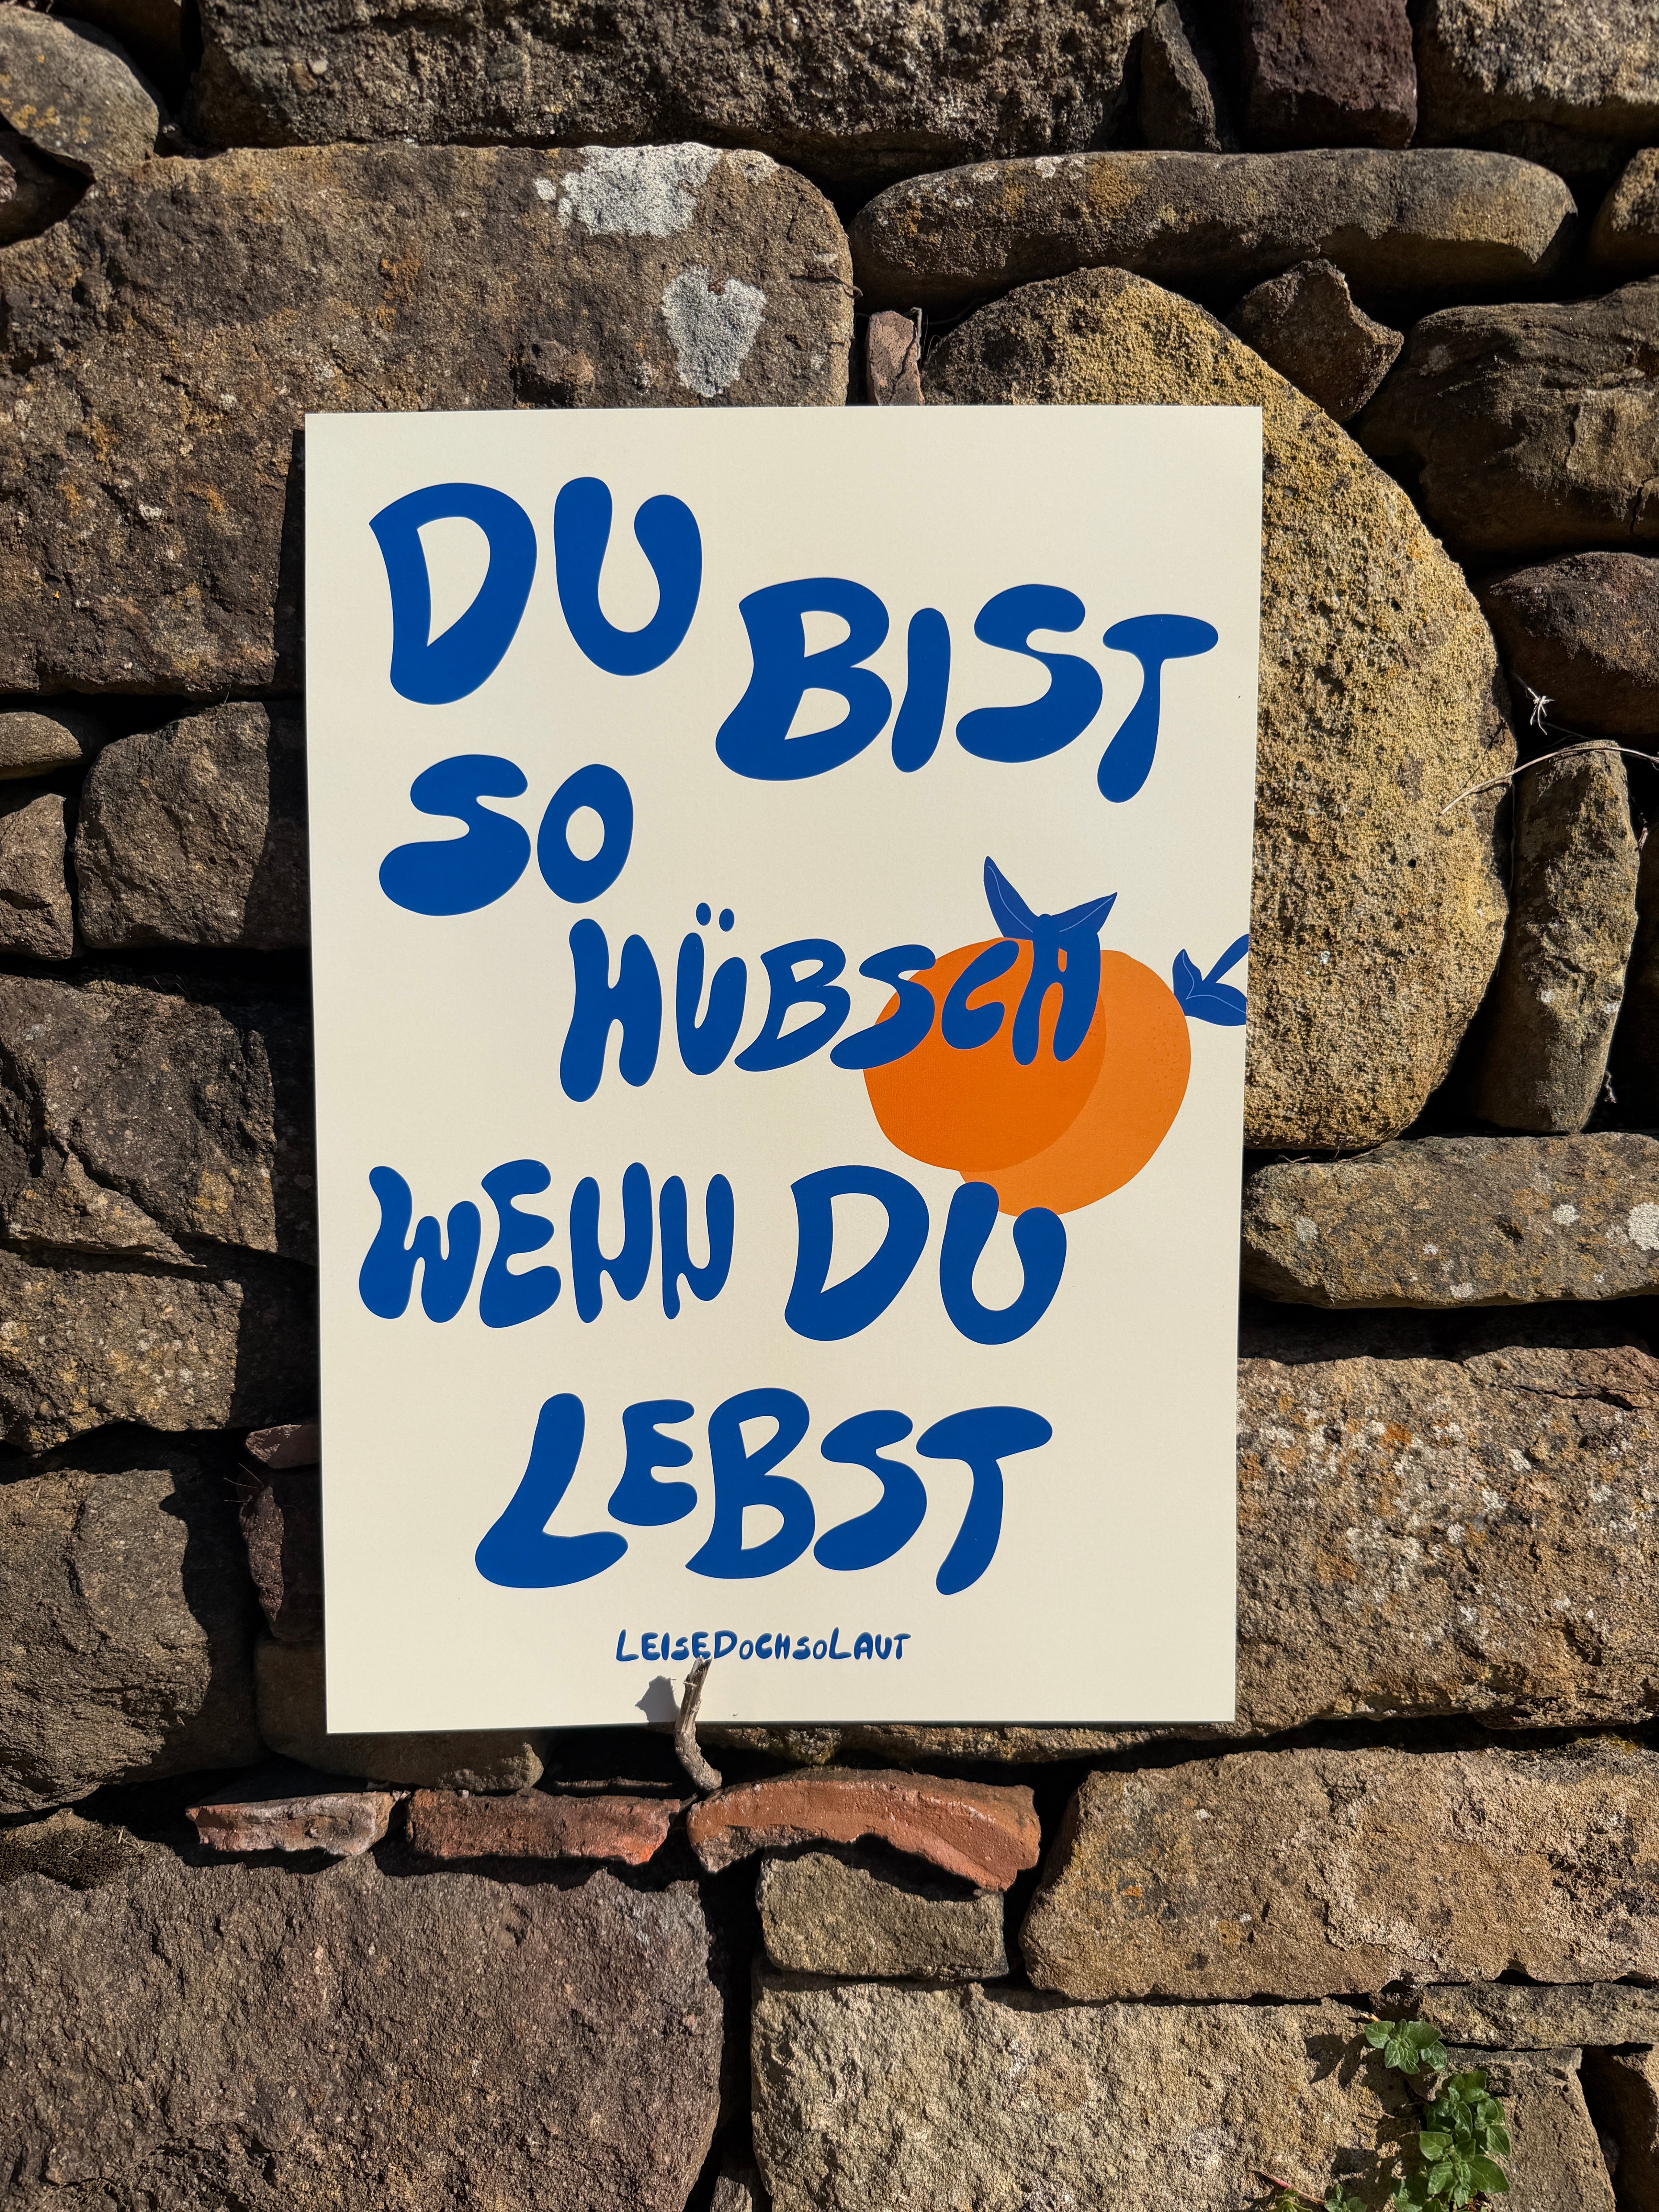 DU BIST
SO
HÜBSCH
WENN DU
LEBST
LEISEDOCHSOLAUT